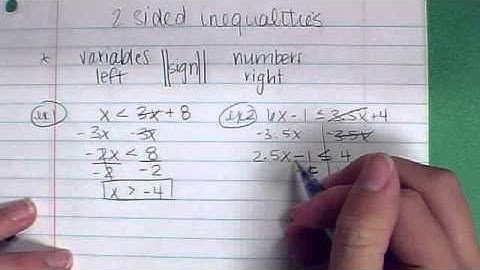 2 sided inequalities
* variables left ||sign|| numbers right
ex1 x < 3x + 8
-3x -3x
-2x < 8
-2 -2
x > -4
ex2 6x - 1 ≤ 3.5x + 4
-3.5x -3.5x
2.5x - 1 ≤ 4